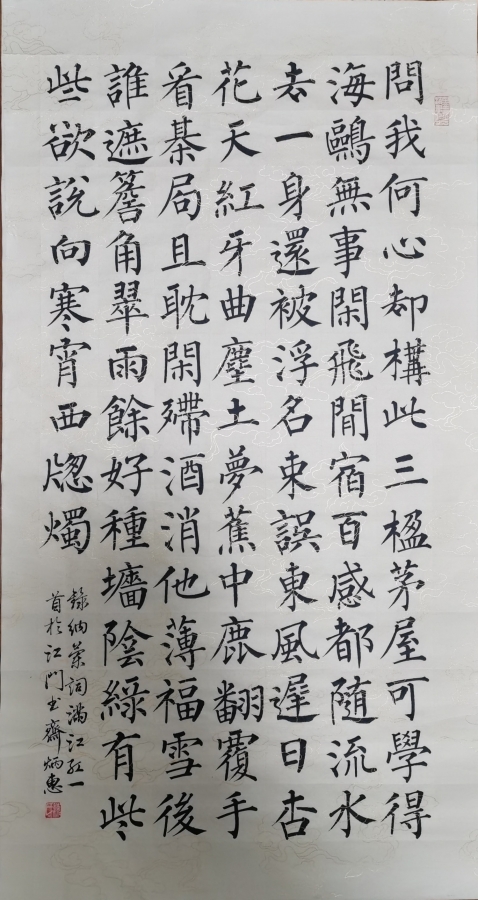 問我何心却構此三楹茅屋可學得
海鷗無事閑飛閒宿百感都隨流水
去一身還被浮名束誤東風遲日杏
花天紅牙曲塵土夢蕉中鹿翻覆手
看棊局且耽閑殢酒消他薄福雪後
誰遮簷角翠雨餘好種墻陰綠有些
些欲說向寒宵西牕燭
錄納蘭詞滿江紅一
首於江門书齋炳惠